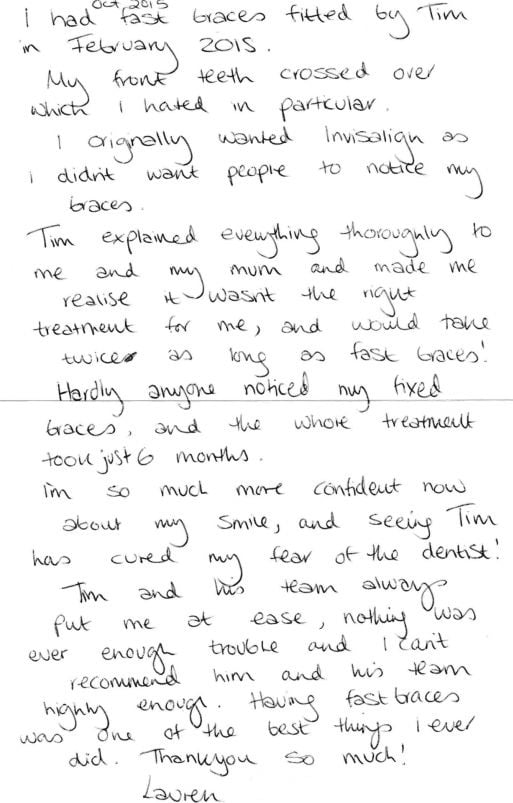 Oct 2015
I had fast braces fitted by Tim
in February 2015.
My front teeth crossed over
which I hated in particular.
I originally wanted Invisalign as
I didn't want people to notice my
braces.
Tim explained everything thoroughly to
me and my mum and made me
realise it wasn't the right
treatment for me, and would take
twice as long as fast braces!
Hardly anyone noticed my fixed
braces, and the whole treatment
took just 6 months.
I'm so much more confident now
about my smile, and seeing Tim
has cured my fear of the dentist!
Tim and his team always
put me at ease, nothing was
ever enough trouble and I can't
recommend him and his team
highly enough. Having fastbraces
was one of the best things I ever
did. Thankyou so much!
Lauren